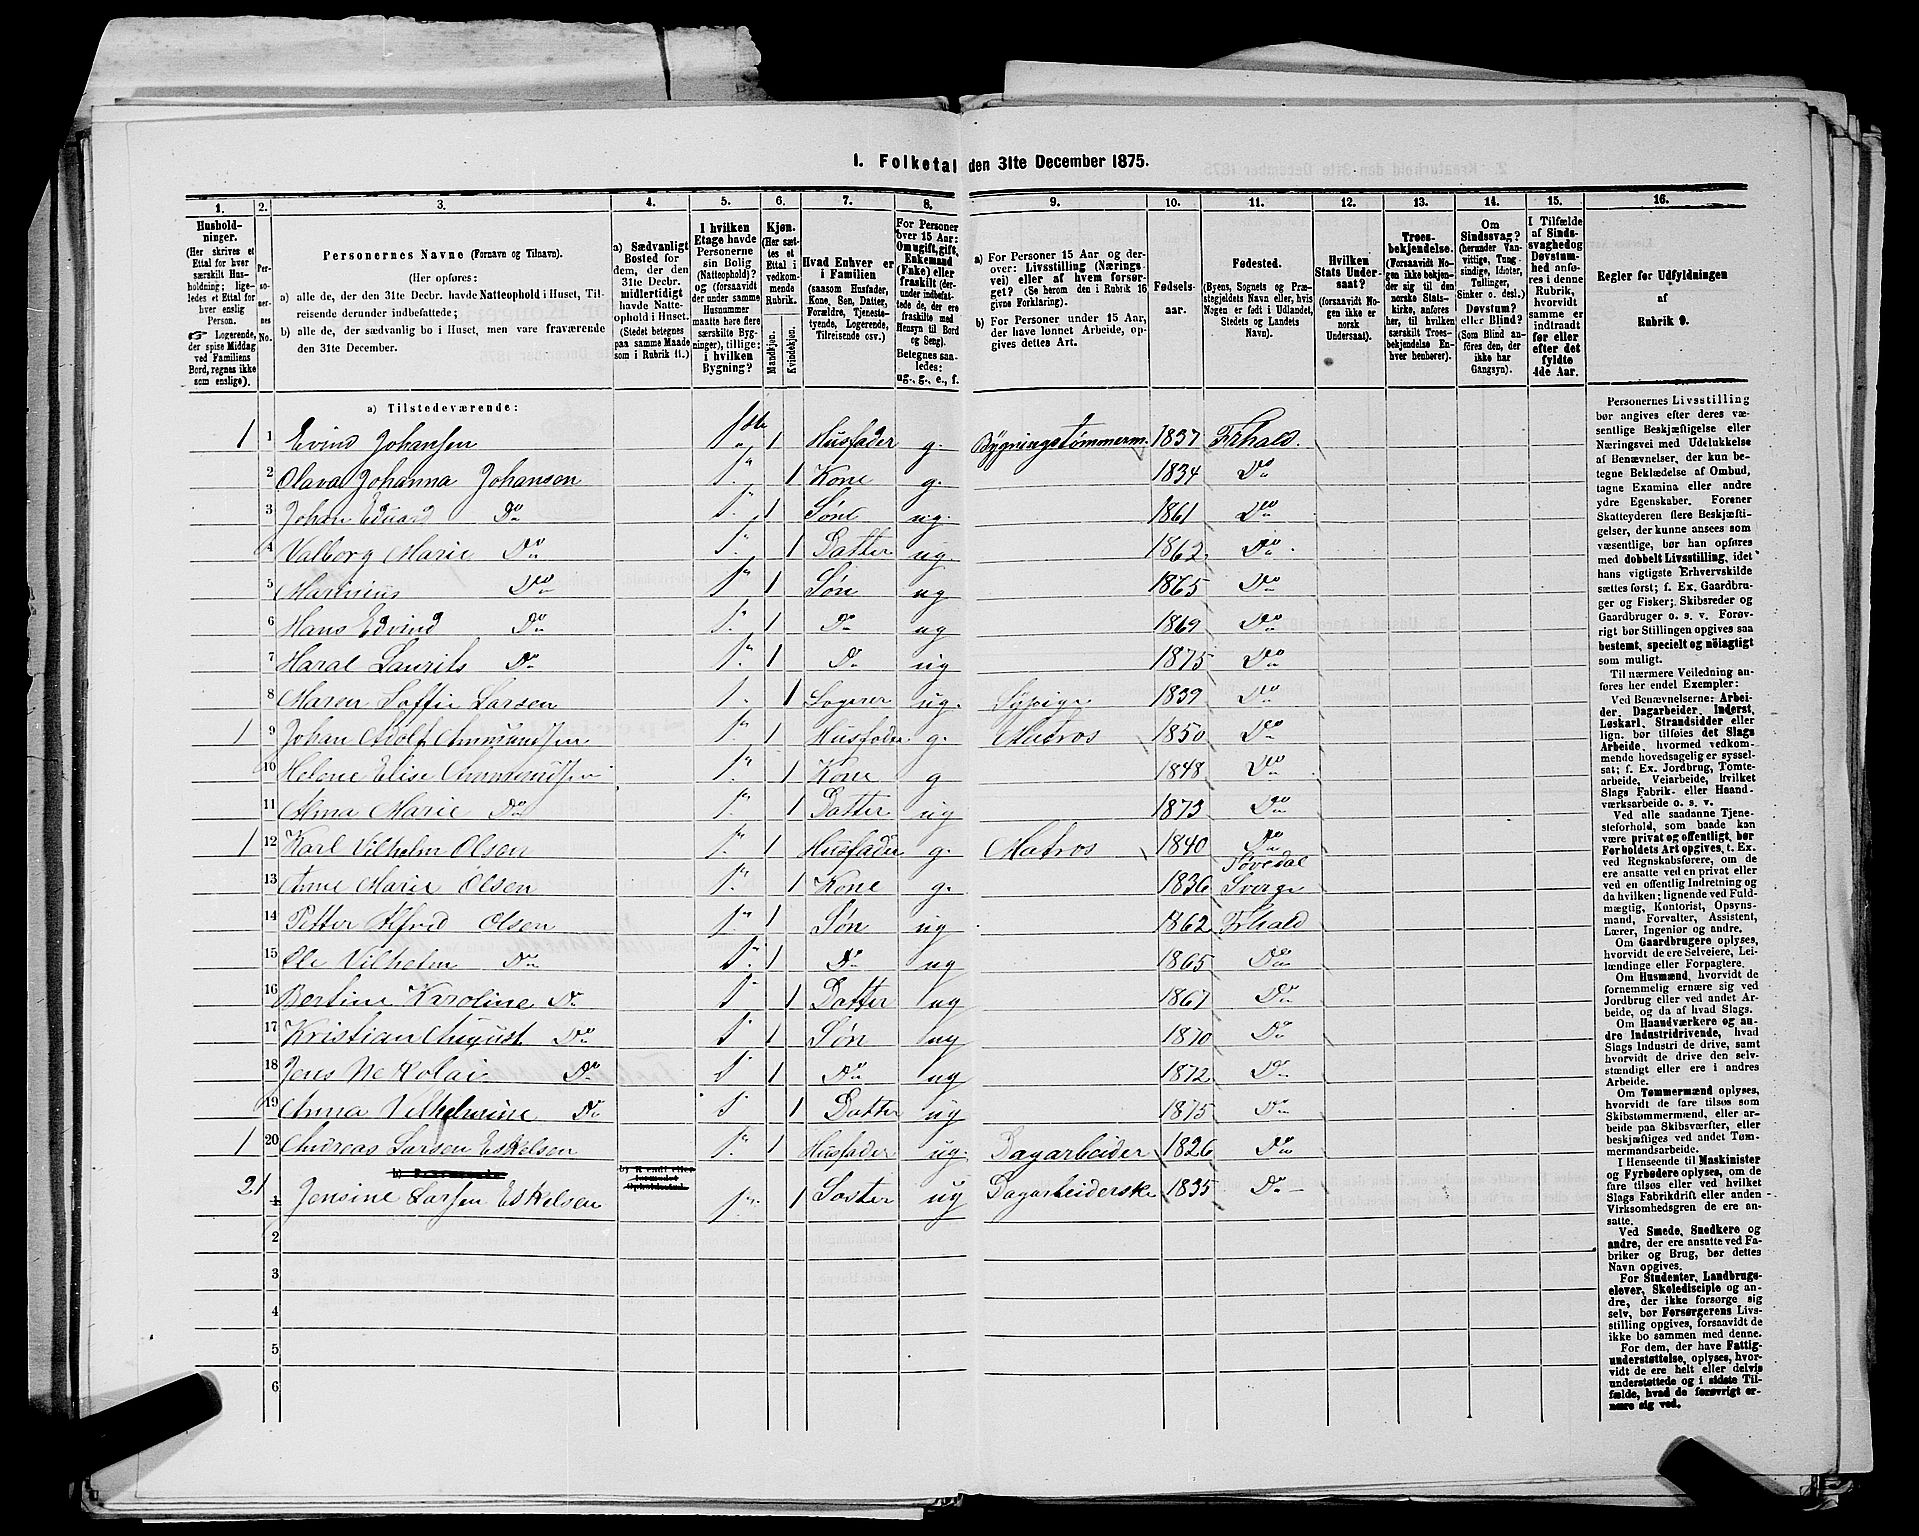 1. Folketal den 31te December 1875.
1. 2. 3. 4. 5. 6. 7. 8. 9. 10. 11. 12. 13. 14. 15. 16.
Husholdninger.
(Her skrives et
Ettal for hver
særskilt Husholdning;
ligeledes et Ettal for
hver enslig
Person.
Logerende,
der spise Middag
ved Familiens
Bord, regnes ikke
som enslige).
Personernes No.
Personernes Navne (Fornavn og Tilnavn).
(Her opføres:
a) alle de, der den 31te Decbr. havde Natteophold i Huset, Tilreisende
derunder indbefattede;
b) alle de, der sædvanlig bo i Huset, men vare fraværende
den 31te December.
a) Sædvanligt
Bosted for
dem, der den
31te Decbr.
midlertidigt
havde Natteophold
i Huset.
(Stedet betegnes
paa samme Maade
som i Rubrik 11.)
I hvilken
Etage havde
Personerne
sin Bolig
(Natteophold)?
og (forsaavidt
der under samme
Husnummer
maatte høre flere
særskilte Bygninger),
tillige:
i hvilken
Bygning?
Kjøn.
(Her sættes
et
Ettal i
vedkommende
Rubrik.
Mandkjøn.
Kvindekjøn.
Hvad Enhver er
i Familien
(saasom Husfader,
Kone, Søn, Datter,
Forældre, Tjenestetyende,
Logerende,
Tilreisende osv.)
For Personer
over 15 Aar:
Om ugift, gift,
Enkemand
(Enke) eller
fraskilt (derunder
indbefattede
de, der ere
fraskilte med
Hensyn til Bord
og Seng).
Betegnes saaledes:
ug., g., e., f.
a) For Personer 15 Aar og derover:
Livsstilling (Næringsvei)
eller af hvem forsørget?
(Se herom den i Rubrik 16
givne Forklaring).
b) For Personer under 15 Aar,
der have lønnet Arbeide, opgives
dettes Art.
Fødselsaar.
Fødested.
(Byens, Sognets og Præstegjeldets
Navn eller, hvis
Nogen er født i Udlandet,
Stedets og Landets
Navn).
Hvilken
Stats Undersaat?
(forsaavidt Nogen
ikke er
norsk
Undersaat).
Troesbekjendelse.
(Forsaavidt Nogen
ikke bekjender
sig til den
norske Statskirke,
anføres
her, til hvilket
særskilt Troesbekjendelse
Enhver
henhører).
Om
Sindssvag?
(herunder Vanvittige,
Tungsindige,
Idioter,
Tullinger,
Sinker o. desl.)
Døvstum?
eller Blind?
(Som Blind anføres
den, der
ikke har
Gangsyn).
I Tilfælde
af Sindssvaghed
og
Døvstumhed
anføres
i denne
Rubrik,
hvorvidt
samme er
indtraadt
før eller
efter det
fyldte
4de Aar.
Regler for Udfyldningen
af
Rubrik 9.
a) Tilstedeværende:
1 1 Evind Johansen 1ste 1 Husfader g. Bygningstømmerm. 1837 Frhald.
2 Olava Johanna Johansen 1" 1 Kone g. 1834 Do
3 Johan Eduard Do 1. 1 Søn ug. 1861 Do
4 Valborg Marie Do 1" 1 Datter ug. 1862 Do
5 Marinius Do 1" 1 Søn ug 1865 Do
6 Hans Edvind Do 1" 1 Do ug 1869 Do
7 Haral Laurits Do 1" 1 Do ug 1875 Do
8 Maren Soffie Larsen 1. 1 Logerer ug. Sypige 1839 Do
1 9 Johan Adolf Ammundsen 1" 1 Husfader g. Matros 1850 Do
10 Helene Elise Ammundsen 1" 1 Kone g 1848 Do
11 Anna Marie Do 1" 1 Datter ug 1873 Do
1 12 Karl Vilhelm Olsen 1" 1 Husfader g. Matros 1840 Do
13 Anne Marie Olsen 1" 1 Kone g. 1836 Sverge
14 Petter Alfred Olsen 1" 1 Søn ug 1862 Frhald
15 Ole Vilhelm Do 1" 1 Do ug 1865 Do
16 Bertine Karoline Do 1 1 Datter ug 1867 Do
17 Kristian August Do 1 1 Søn ug 1870 Do
18 Jens Nekolai Do 1 1 Do ug 1872 Do
19 Anna Vilhelmine Do 1 1 Datter ug 1875 Do
1 20 Andreas Larsen Eskelsen 1" 1 Husfader ug. Dagarbeider 1826 Do
21 Jensine Larsen Eskelsen 1" 1 Søster ug Dagarbeiderske 1835 Do
2
3
4
5
6
Personernes Livsstilling
bør angives efter deres væsentlige
Beskjæftigelse eller
Næringsvei med Udelukkelse
af Benævnelser, der kun betegne
Beklædelse af Ombud,
tagne Examina eller andre
ydre Egenskaber. Forener
Skatteyderen flere Beskjæftigelser,
der kunne ansees som
væsentlige, bør han opføres
med dobbelt Livsstilling, idet
hans vigtigste Erhvervskilde
sættes først; f. Ex. Gaardbruger
og Fisker; Skibsreder og
Gaardbruger o. s. v. Forøvrigt
bør Stillingen opgives saa
bestemt, specielt og nøiagtigt
som muligt.
Til nærmere Veiledning anføres
her endel Exempler:
Ved Benævnelserne: Arbeider,
Dagarbeider, Inderst,
Løskarl, Strandsidder eller
lign. bør tilføies det Slags
Arbeide, hvormed vedkommende
hovedsagelig er sysselsat;
f. Ex. Jordbrug, Tomtearbeide,
Veiarbeide, hvilket
Slags Fabrik- eller Haandværksarbeide
o. s. v.
Ved alle saadanne Tjenesteforhold,
som baade kan
være privat og offentligt, bør
Forholdets Art opgives, t. Ex.
ved Regnskabsførere, om de
ere ansatte ved en privat eller
ved en offentlig Indretning og
da hvilken; lignende ved Fuldmægtig,
Kontorist, Opsynsmand,
Forvalter, Assistent,
Lærer, Ingeniør og andre.
Om Gaardbrugere oplyses,
hvorvidt de ere Selveiere, Leilændinge
eller Forpagtere.
Om Husmænd, hvorvidt de
fornemmelig ernære sig ved
Jordbrug eller ved andet Arbeide,
og da af hvad Slags.
Om Haandværkere og andre
Industridrivende, hvad
Slags Industri de drive, samt
hvorvidt de drive den selvstændigt
eller ere i andres
Arbeide.
Om Tømmermænd oplyses,
hvorvidt de fare tilsøs som
Skibstømmermænd, eller arbeide
paa Skibsværfter, eller
beskjæftiges ved andet Tømmermandsarbeide.
I Henseende til Maskinister
og Fyrbødere oplyses, om de
fare tilsøs eller ved hvilket
Slags Fabrikdrift eller anden
Virksomhedsgren de ere ansatte.
Ved Smede, Snedkere og
andre, der ere ansatte ved Fabriker
og Brug, bør dettes
Navn opgives.
For Studenter, Landbrugselever,
Skoledisciple og andre,
der ikke forsørge sig
selv, bør Forsørgerens Livsstilling
opgives, forsaavidt de
ikke bo sammen med denne.
For dem, der have Fattigunderstøttelse,
oplyses, hvorvidt
de ere helt eller delvis
understøttede og i sidste Tilfælde,
hvad de forøvrigt ernære
sig ved.